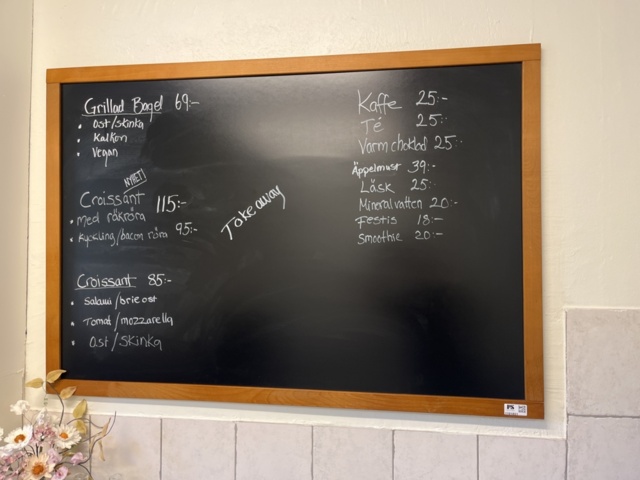 Grillad Bagel 69:-
• Ost/Skinka
• Kalkon
• Vegan
NYHET!
Croissant 115:-
• med räkröra
• Kyckling/bacon röra 95:-
Croissant 85:-
• Salami/brieost
• Tomat/mozzarella
• Ost/Skinka
Take away
Kaffe 25:-
Té 25:-
Varm choklad 25:-
Äppelmust 39:-
Läsk 25:-
Mineralvatten 20:-
Festis 18:-
Smoothie 20:-
PS